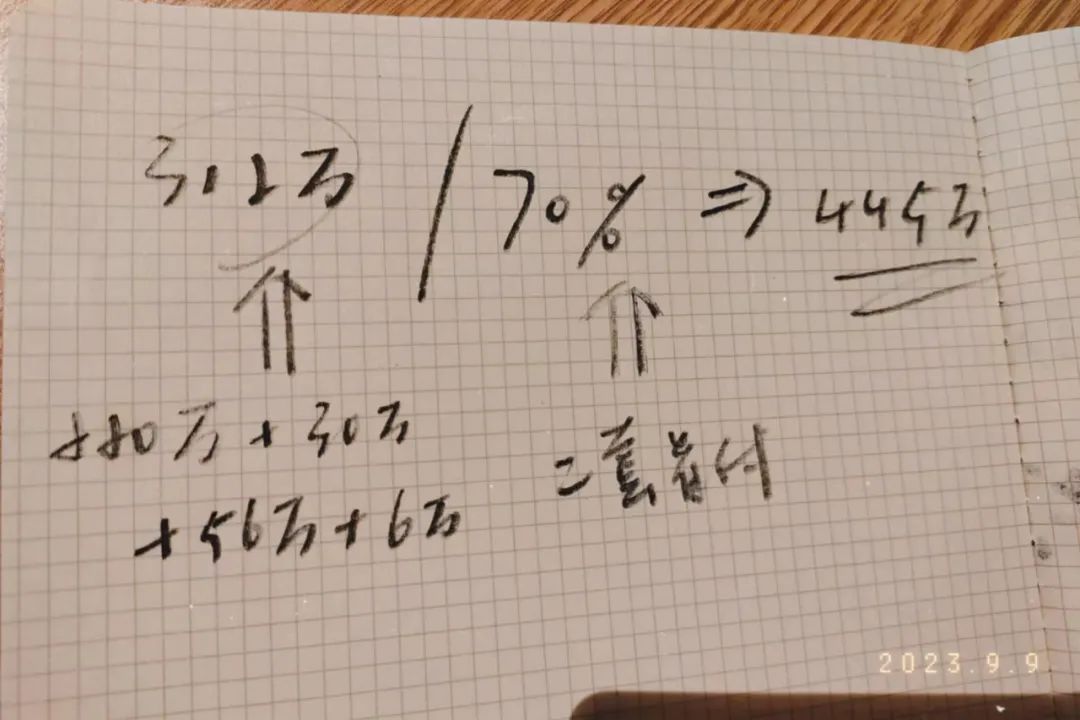 312万 / 70% ⇒ 445万
220万 + 30万
+ 56万 + 6万
二套首付
2023.9.9